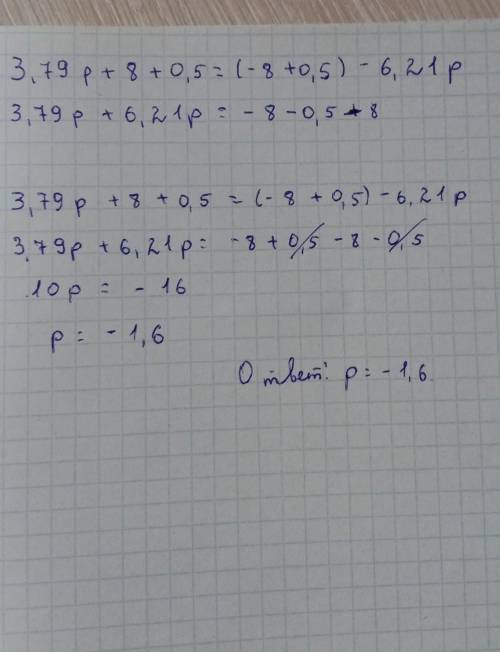 3,79 p + 8 + 0,5 = (-8 + 0,5) - 6,21 p
3,79 p + 6,21 p = - 8 - 0,5 - 8
3,79 p + 8 + 0,5 = (- 8 + 0,5) - 6,21 p
3,79 p + 6,21 p = - 8 + 0,5 - 8 - 0,5
10 p = - 16
p = - 1,6
Ответ: p = - 1,6.